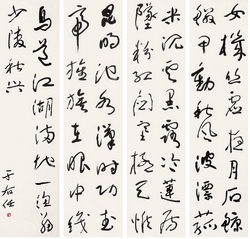 女機絲虛夜月石鯨
鱗甲動秋風波漂菰
米沉雲黑露冷蓮房
墜粉紅關塞極天惟
昆明池水漢時功武
帝旌旗在眼中織
鳥道江湖滿地一漁翁
少陵秋興
于右任